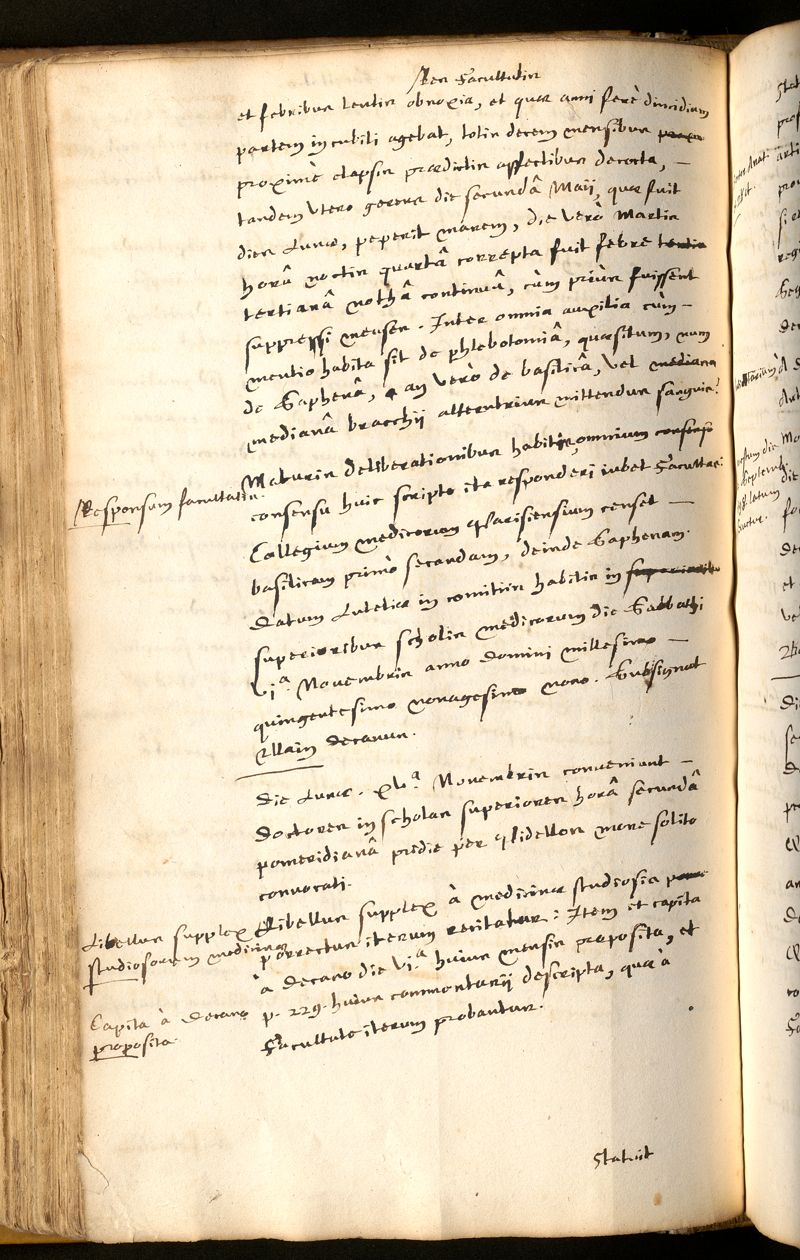 Res Facultatis
et febribus lentis obnoxia, et quae anni ferè dimidiam
partem in cubili agebat, totis decem mensibus
proximè elapsis praedictis affectibus decocta, —
tandem utero gerens die secundâ Maij, quae fuit
dies Lunae, peperit marem, die verò Martis
horâ noctis quartâ correpta fuit febre tertia
tertianâ nothâ continuâ, cùm priùs fuissent
suppressi menses. Inter omnia auxilia cùm —
mentio habita sit de phlebotomiâ, quaesitum, num
de Saphenâ, an verò de basilicâ, vel mediana
medianâ bracchij alterutrius mittendus sanguis?
Maturis deliberationibus habitis, omnium consensu
Responsum facultatis.
consensu huic scripto ita responderi iubet Facultas:
Collegium medicorum Parisiensium censet —
basilicam primò secandam, deinde Saphenam.
Datum Lutetiae in comitiis habitis in superioribus
superioribus scholis medicorum die Sabbathi
vi.ª Novembris anno Domini millesimo —
quingentesimo nonagesimo nono. Subsignat
Illain decanus.
Die Lunae. xv.ª Novembris conveniunt —
doctores in scholas superiores horâ secundâ
pomeridianâ pridie per Bidellos more solito
convocati.
Libellus supplex
studiosorum medicinae
Libellus supplex à medicinae studiosis
porrectus iterum recitatur: Item et capita
à decano die vi.ª huius mensis proposita, et
Capita à Decano
proposita.
p. 229. huius commentarij descripta, quae à
Facultate iterum probantur.
Statuit